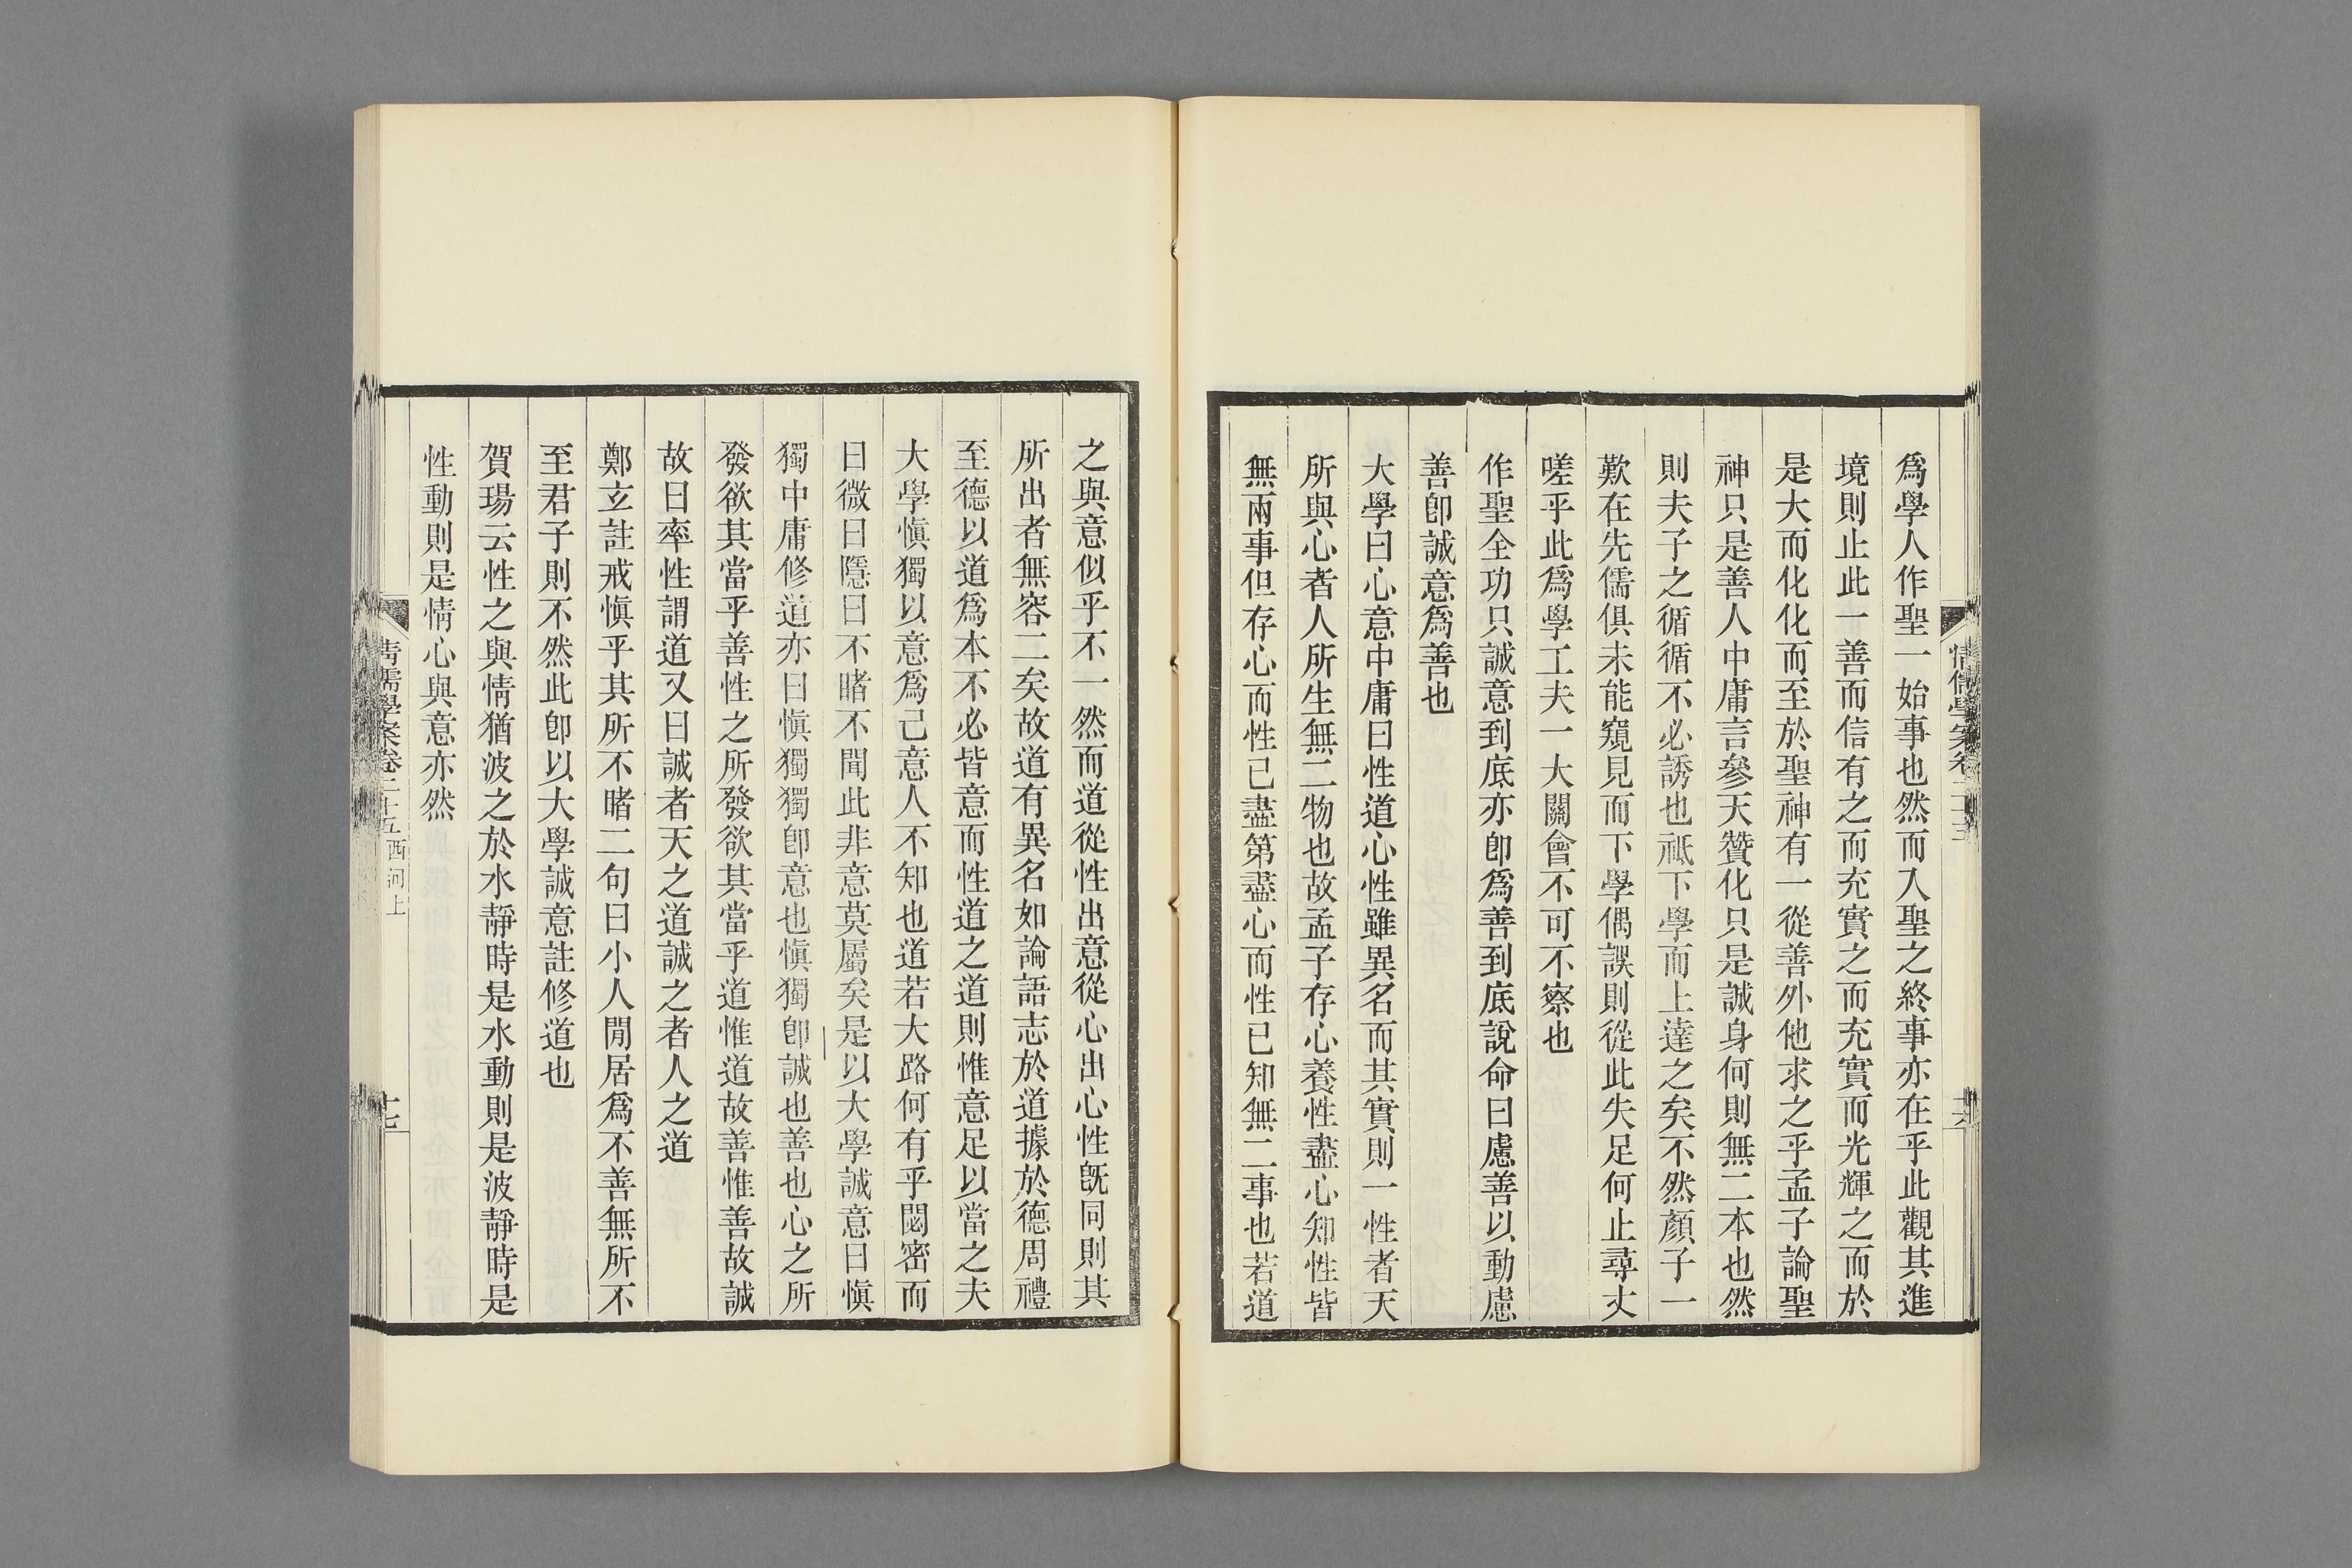 爲學人作聖一始事也然而入聖之終事亦在乎此觀其進
境則止此一善而信有之而充實之而充實而光輝之而於
是大而化化而至於聖神有一從善外他求之乎孟子論聖
神只是善人中庸言參天贊化只是誠身何則無二本也然
則夫子之循循不必誘也祗下學而上達之矣不然顏子一
歎在先儒俱未能窺見而下學偶誤則從此失足何止尋丈
嗟乎此爲學工夫一大關會不可不察也
作聖全功只誠意到底亦卽爲善到底說命曰慮善以動慮
善卽誠意爲善也
大學曰心意中庸曰性道心性雖異名而其實則一性者天
所與心者人所生無二物也故孟子存心養性盡心知性皆
無兩事但存心而性已盡第盡心而性已知無二事也若道
之與意似乎不一然而道從性出意從心出心性旣同則其
所出者無容二矣故道有異名如論語志於道據於德周禮
至德以道爲本不必皆意而性道之道則惟意足以當之夫
大學愼獨以意爲己意人不知也道若大路何有乎閟密而
曰微曰隱曰不睹不聞此非意莫屬矣是以大學誠意曰愼
獨中庸修道亦曰愼獨獨卽意也愼獨卽誠也善也心之所
發欲其當乎善性之所發欲其當乎道惟道故善惟善故誠
故曰率性謂道又曰誠者天之道誠之者人之道
鄭玄註戒愼乎其所不睹二句曰小人閒居爲不善無所不
至君子則不然此卽以大學誠意註修道也
賀瑒云性之與情猶波之於水靜時是水動則是波靜時是
性動則是情心與意亦然
清儒學案卷二十五 西河上
十七